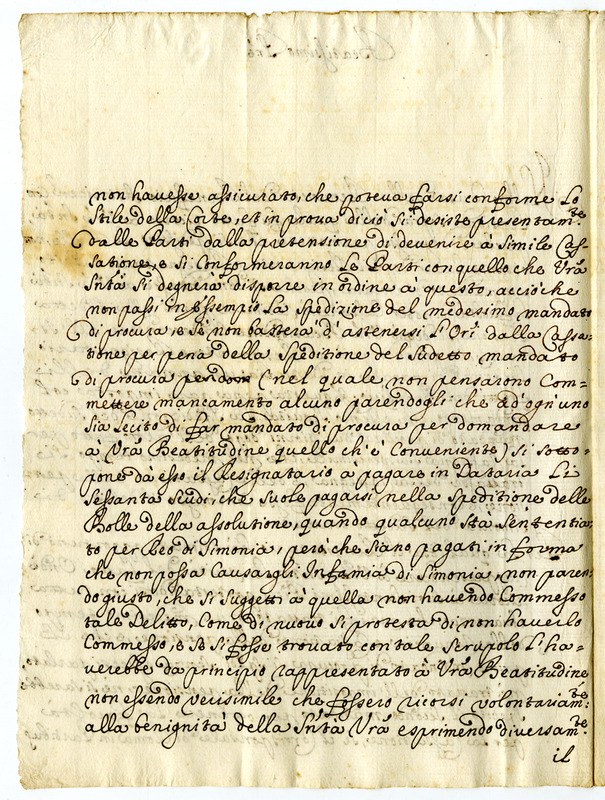 non havesse assicurato, che poteva farsi conforme Lo
Stile della Corte, et in prova di ciò si desiste presentam.te
dalle Parti dalla pretensione di devenire à simile Cas-
satione, e si Conformeranno Le Parti con quello che Vrã
Sntà si degnerà disporre in ordine à questo, acciò che
non passi in essempio La Spedizione del medesimo mandato
di procura, e se non bastera d'astenersi l'Ori dalla Cassa-
tione per pena della Speditione del Sudetto mandato
di procura (nel quale, non pensarono Com-
mettere mancamento alcuno parendogli che ad'ogn'uno
sia Lecito di far mandato di procura per domandare
à Vrã Beatitudine quello ch'è Conveniente) si sotto-
pone dà esso il Resignatario à pagare in Dataria Li
Sessanta Scudi, che suole pagarsi nella Speditione delle
Bolle della assolutione, quando qualcuno stà Sententia-
to per Reo di Simonia, però che siano pagati in forma
che non possa Causargli Infamia di Simonia, non paren-
do giusto, che si suggetti à quella non havendo Commesso
tale Delitto, Come di nuovo si protesta di non haverlo
Commesso, e se si fosse trovato con tale scrupolo l'ha-
verebbe dà principio rappresentato à Vrã Beatitudine
non essendo verisimile che fossero ricorsi volontariam.te
alla benignità della Sntà Vrã esprimendo diversam.te
il